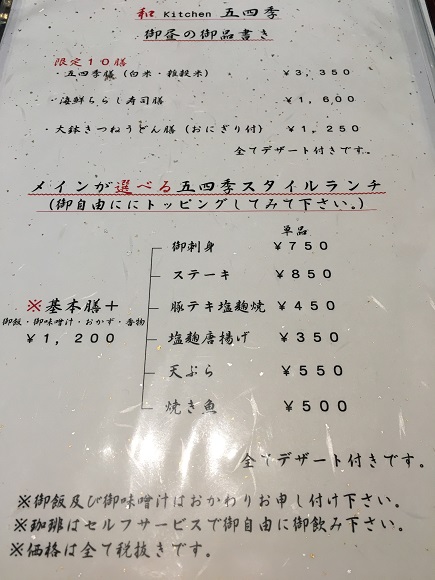 和 Kitchen 五四季
御昼の御品書き
限定１０膳
・五四季膳（白米・雑穀米） ￥３，３５０
・海鮮ちらし寿司膳 ￥１，６００
・大鉢きつねうどん膳（おにぎり付） ￥１，２５０
全てデザート付きです。
メインが選べる五四季スタイルランチ
（御自由ににトッピングしてみて下さい。）
単品
御刺身 ￥７５０
ステーキ ￥８５０
豚テキ塩麹焼 ￥４５０
塩麹唐揚げ ￥３５０
天ぷら ￥５５０
焼き魚 ￥５００
※基本膳＋
御飯・御味噌汁・おかず・香物
￥１，２００
全てデザート付きです。
※御飯及び御味噌汁はおかわりお申し付け下さい。
※珈琲はセルフサービスで御自由に御飲み下さい。
※価格は全て税抜きです。